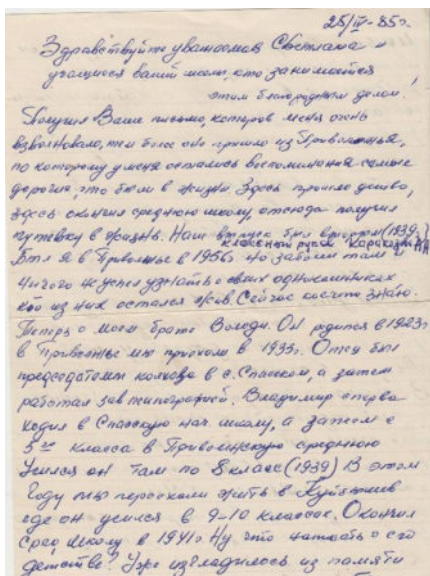 25/IV-85г.
Здравствуйте уважаемая Светлана и
учащиеся вашей школы, кто занимается
этим благородным делом.
Получил Ваше письмо, которое меня очень
взволновало, тем более оно пришло из Приволжья,
по которому у меня остались воспоминания самые
дорогие, что были в жизни. Здесь прошло детство,
здесь окончил среднюю школу, отсюда получил
путевку в жизнь. Наш выпуск был (1939г)
классный руков.
Был я в Приволжье в 1956г но заболел там и
ничего не успел узнать о своих однокашниках
кто из них остался жив. Сейчас кое что знаю.
Теперь о моем брате Володе. Он родился в 1923г
в Приволжье мы приехали в 1933г. Отец был
председателем колхоза в с. Спасском, а затем
работал зав типографией. Владимир сперва
ходил в Спасскую нач. школу, а затем с
5го класса в Приволжскую среднюю
Учился он там по 8 класс (1939) В этом
году мы переехали жить в Куйбышев
где он учился в 9-10 классах. Окончил
сред. школу в 1941г Ну что написать о его
детстве? Уже изгладилось из памяти